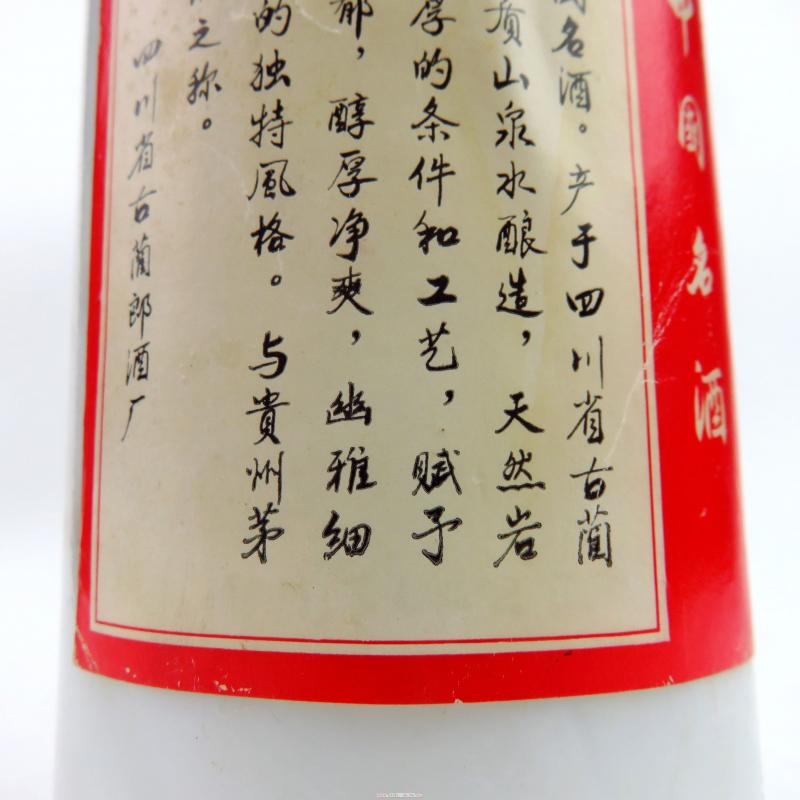 中国名酒
国名酒。产于四川省古蔺
质山泉水酿造，天然岩
厚的条件和工艺，赋予
郁，醇厚净爽，幽雅细
的独特風格。与貴州茅
之称。
四川省古蔺郎酒厂